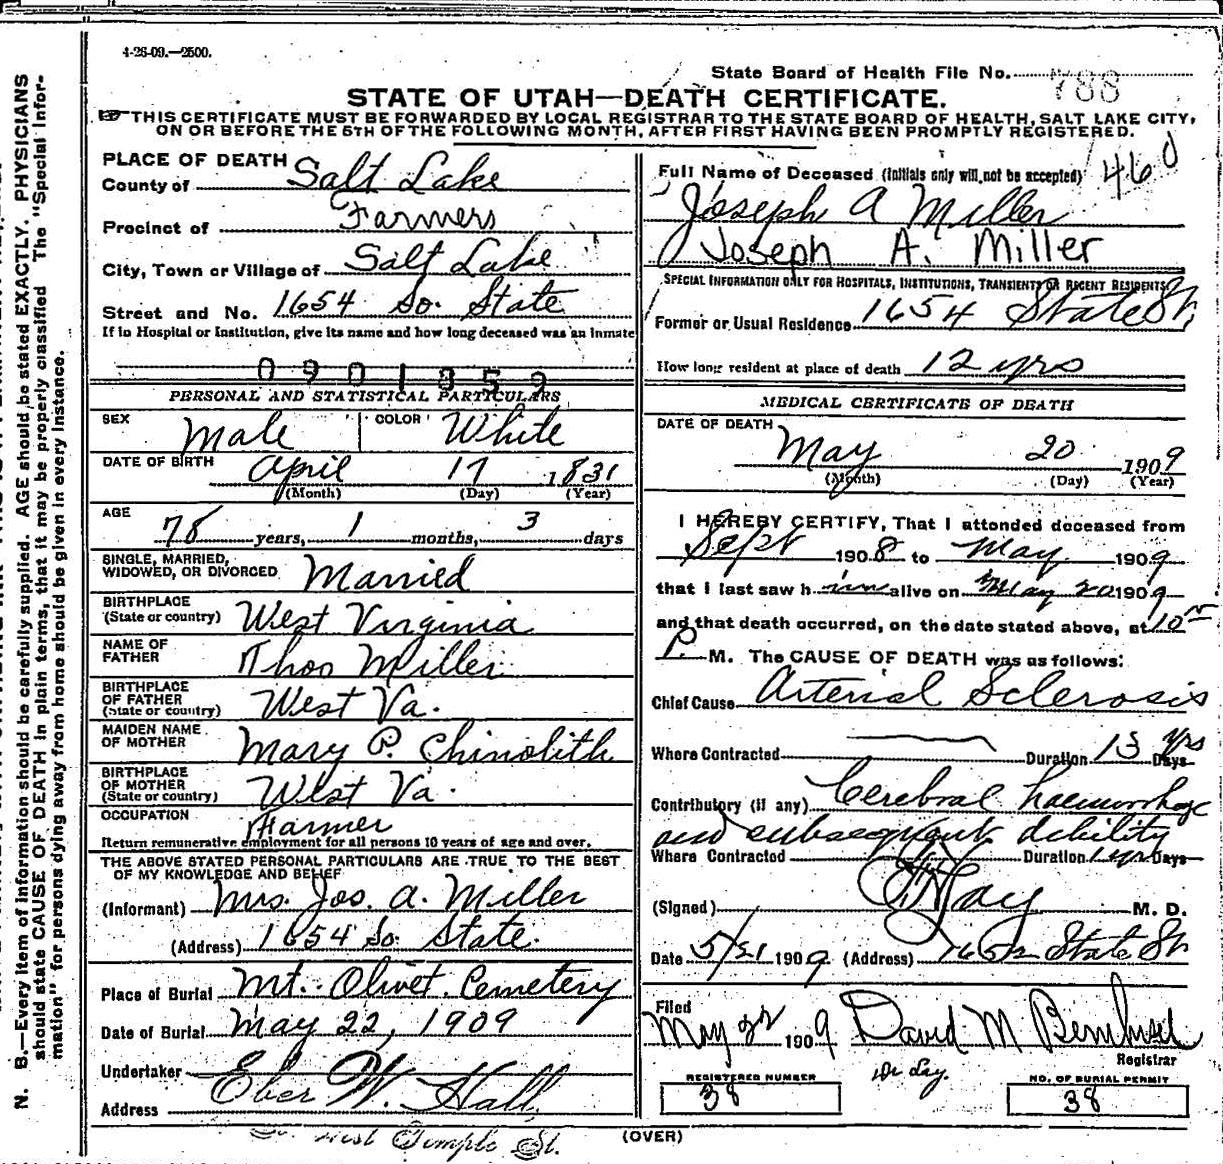 4-26-09.—2500.
State Board of Health File No. 788
STATE OF UTAH—DEATH CERTIFICATE.
THIS CERTIFICATE MUST BE FORWARDED BY LOCAL REGISTRAR TO THE STATE BOARD OF HEALTH, SALT LAKE CITY,
ON OR BEFORE THE 5TH OF THE FOLLOWING MONTH, AFTER FIRST HAVING BEEN PROMPTLY REGISTERED.
PLACE OF DEATH
County of Salt Lake
Precinct of Farmers
City, Town or Village of Salt Lake
Street and No. 1654 So. State
If in Hospital or Institution, give its name and how long deceased was an inmate
0901859
PERSONAL AND STATISTICAL PARTICULARS
SEX Male COLOR White
DATE OF BIRTH April 17 1831
(Month) (Day) (Year)
AGE
78 years, 1 months, 3 days
SINGLE, MARRIED,
WIDOWED, OR DIVORCED Married
BIRTHPLACE
(State or country) West Virginia
NAME OF
FATHER Thos Miller
BIRTHPLACE
OF FATHER
(State or country) West Va.
MAIDEN NAME
OF MOTHER Mary P. Chinolith
BIRTHPLACE
OF MOTHER
(State or country) West Va.
OCCUPATION Farmer
Return remunerative employment for all persons 10 years of age and over.
THE ABOVE STATED PERSONAL PARTICULARS ARE TRUE TO THE BEST
OF MY KNOWLEDGE AND BELIEF
(Informant) Mrs. Jos. A. Miller
(Address) 1654 So. State.
Place of Burial Mt. Olivet Cemetery
Date of Burial May 22, 1909
Undertaker Eber W. Hall
Address West Temple St.
460
Full Name of Deceased (Initials only will not be accepted)
Joseph A Miller
Joseph A. Miller
SPECIAL INFORMATION ONLY FOR HOSPITALS, INSTITUTIONS, TRANSIENTS OR RECENT RESIDENTS
Former or Usual Residence 1654 State St
How long resident at place of death 12 yrs
MEDICAL CERTIFICATE OF DEATH
DATE OF DEATH
May 20 1909
(Month) (Day) (Year)
I HEREBY CERTIFY, That I attended deceased from
Sept 1908 to May 1909
that I last saw him alive on May 20 1909
and that death occurred, on the date stated above, at 10
P. M. The CAUSE OF DEATH was as follows:
Chief Cause Arterial Sclerosis
Where Contracted Duration 13 yrs Days
Contributory (if any) Cerebral haemorrhage
and subsequent debility
Where Contracted Duration 1 yr Days
(Signed) M. D.
Date 5/21 1909 (Address) 1652 State St
Filed
May 22 1909 David M
Registrar
REGISTERED NUMBER
38
NO. OF BURIAL PERMIT
38
(OVER)
N. B.—Every item of information should be carefully supplied. AGE should be stated EXACTLY. PHYSICIANS
should state CAUSE OF DEATH in plain terms, that it may be properly classified The "Special Infor-
mation" for persons dying away from home should be given in every instance.